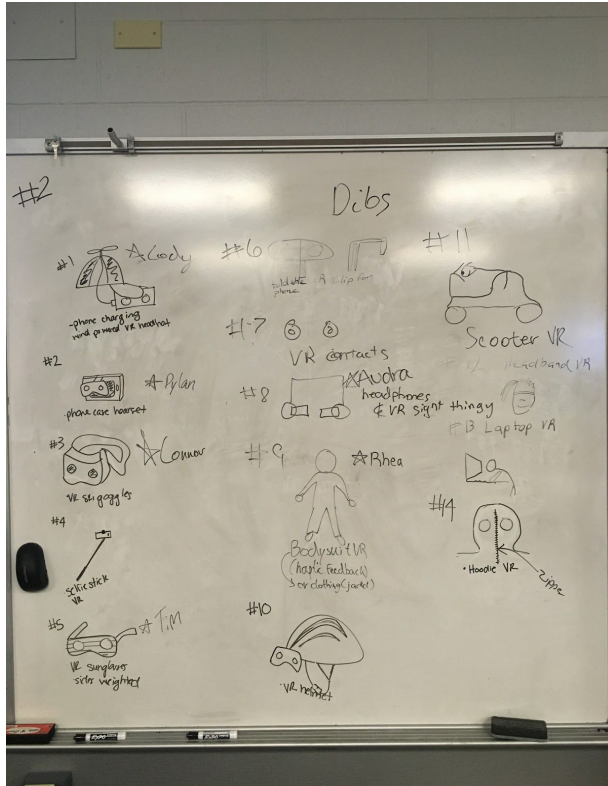 #2
Dibs
#1
Cody
-phone charging
wind powered VR headhat
#2
Dylan
phone case headset
#3
Connor
VR ski goggles
#4
selfie stick
VR
#5
Tim
VR sunglasses
sides weighted
#6
phone
#7
VR contacts
#8
Audra
headphones
& VR sight thingy
#9
Rhea
Bodysuit VR
(haptic feedback)
or clothing (jacket)
#10
VR helmet
#11
Scooter VR
Headband VR
Laptop VR
#14
• Hoodie VR
zipper
EXPO
EXPO